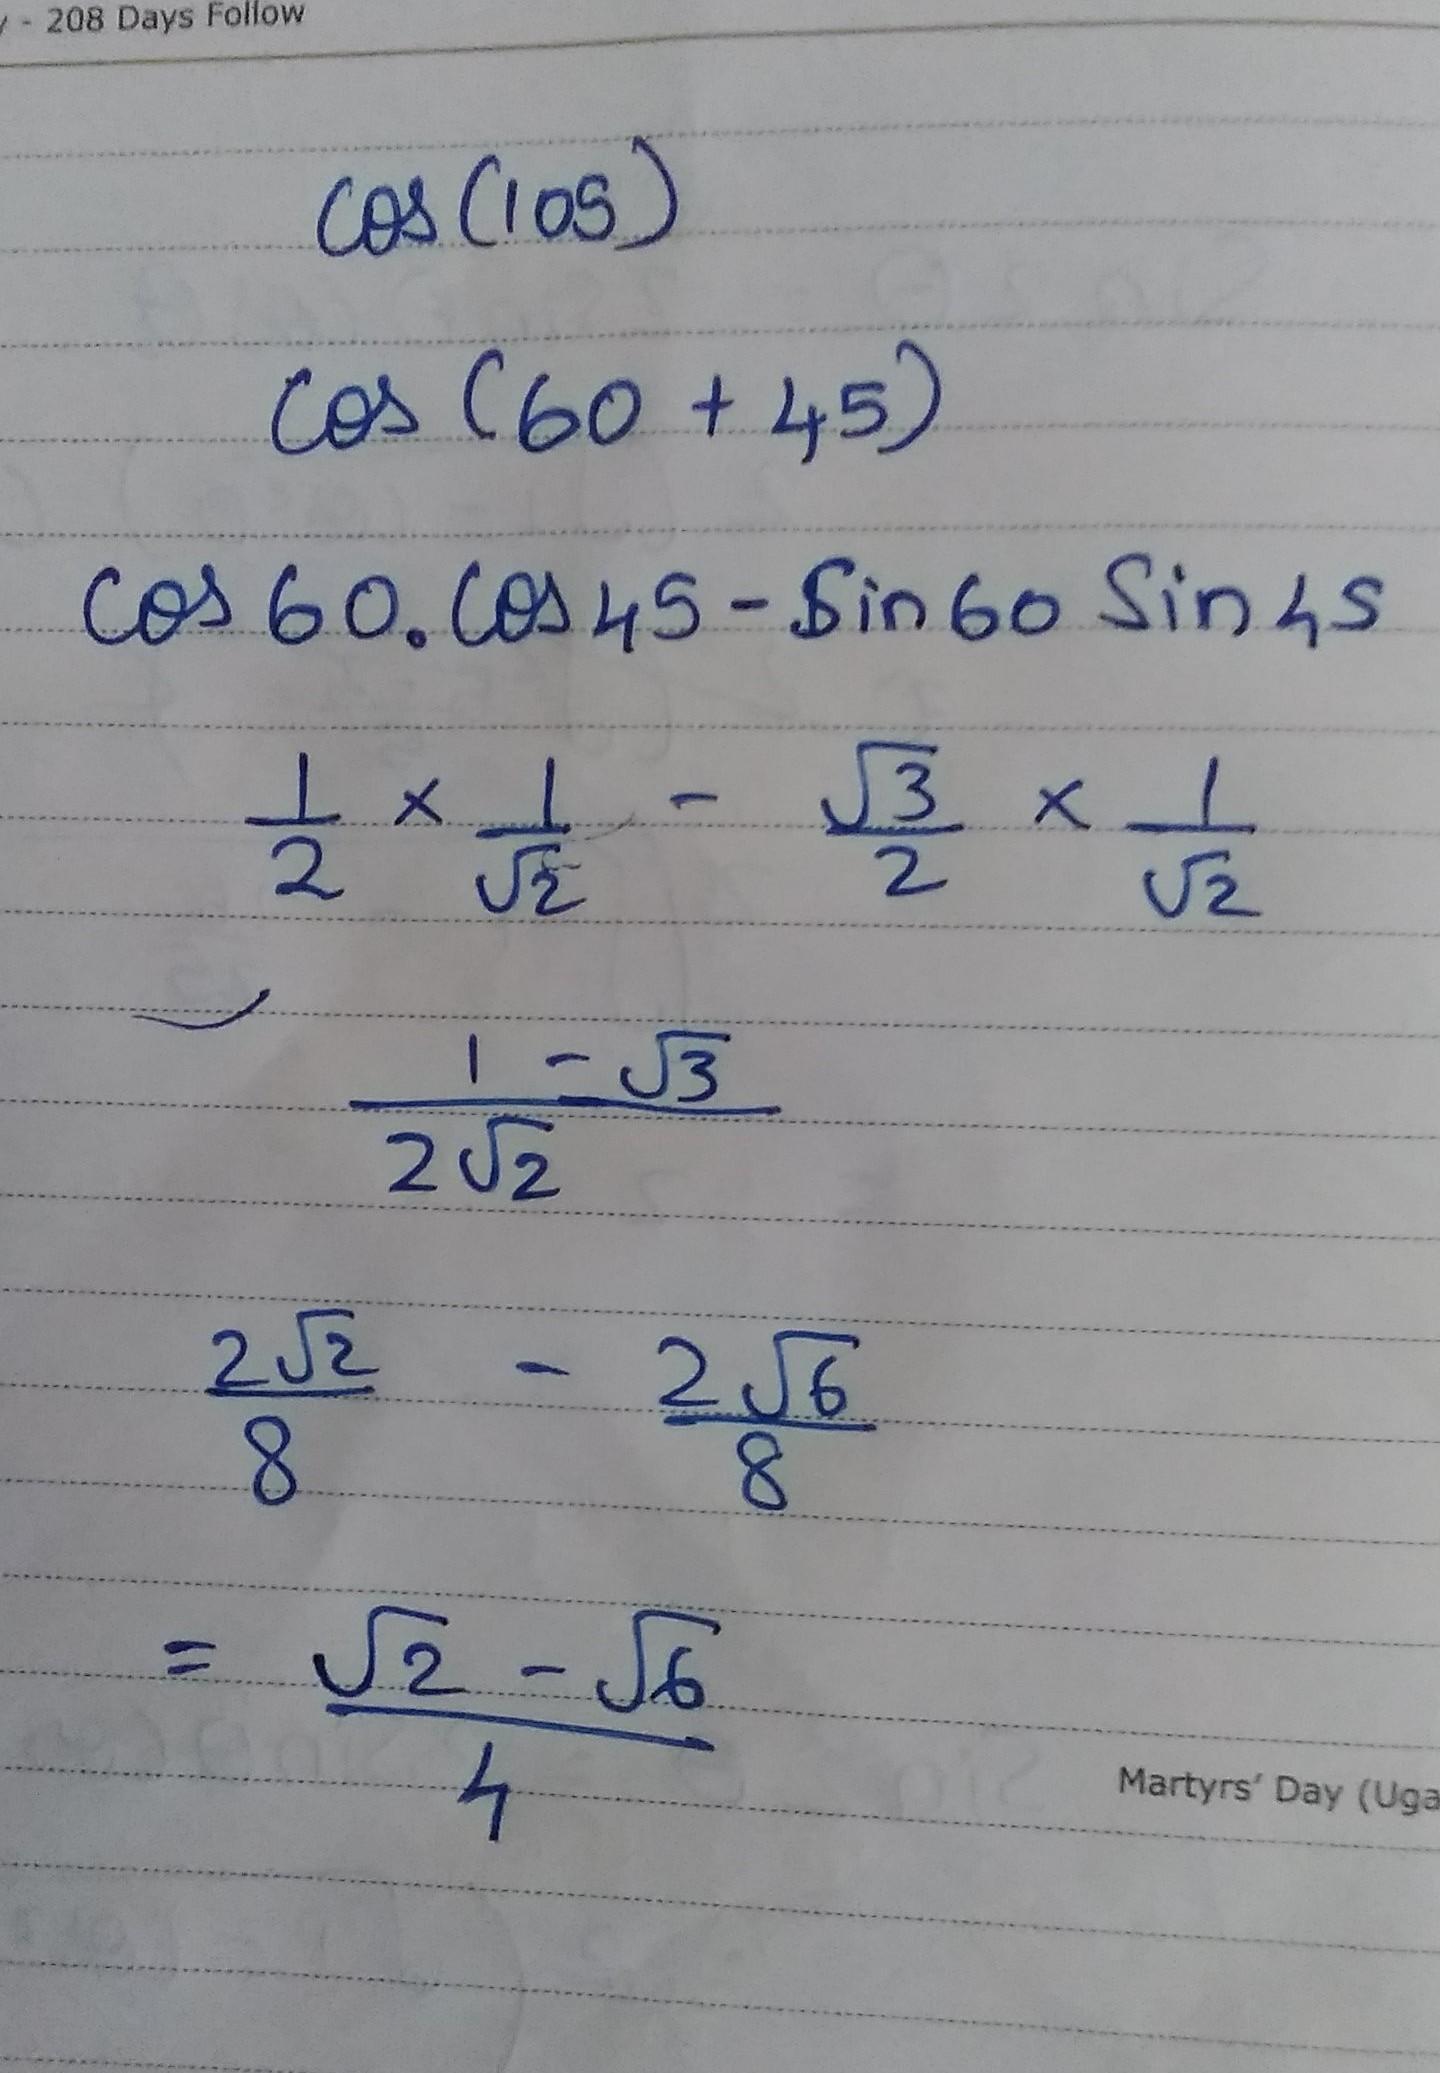 - 208 Days Follow
cos(105)
cos (60 + 45)
cos 60 . cos 45 - Sin 60 Sin 45
1/2 × 1/√2 - √3/2 × 1/√2
1 - √3 / 2√2
2√2/8 - 2√6/8
= √2 - √6 / 4
Martyrs' Day (Uga